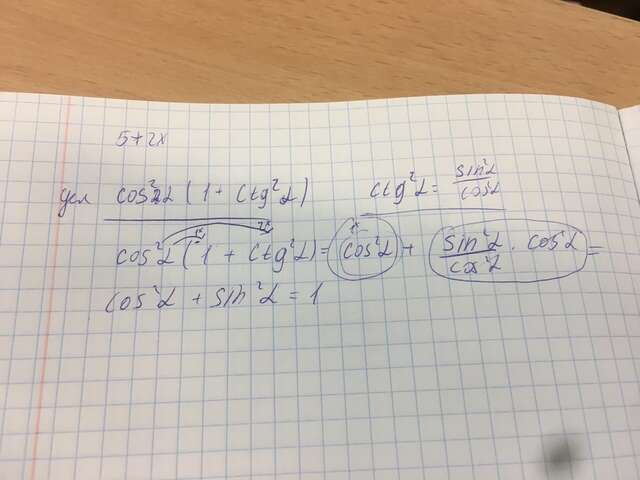 5+2x
cos²α (1 + ctg²α) ctg²α = sin²α / cos²α
cos²α (1 + ctg²α) = cos²α + sin²α / cos²α · cos²α =
cos²α + sin²α = 1